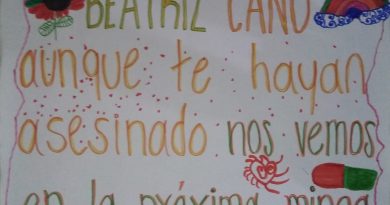 BEATRIZ CANO
aunque te hayan
asesinado nos vemos
en la próxima minga